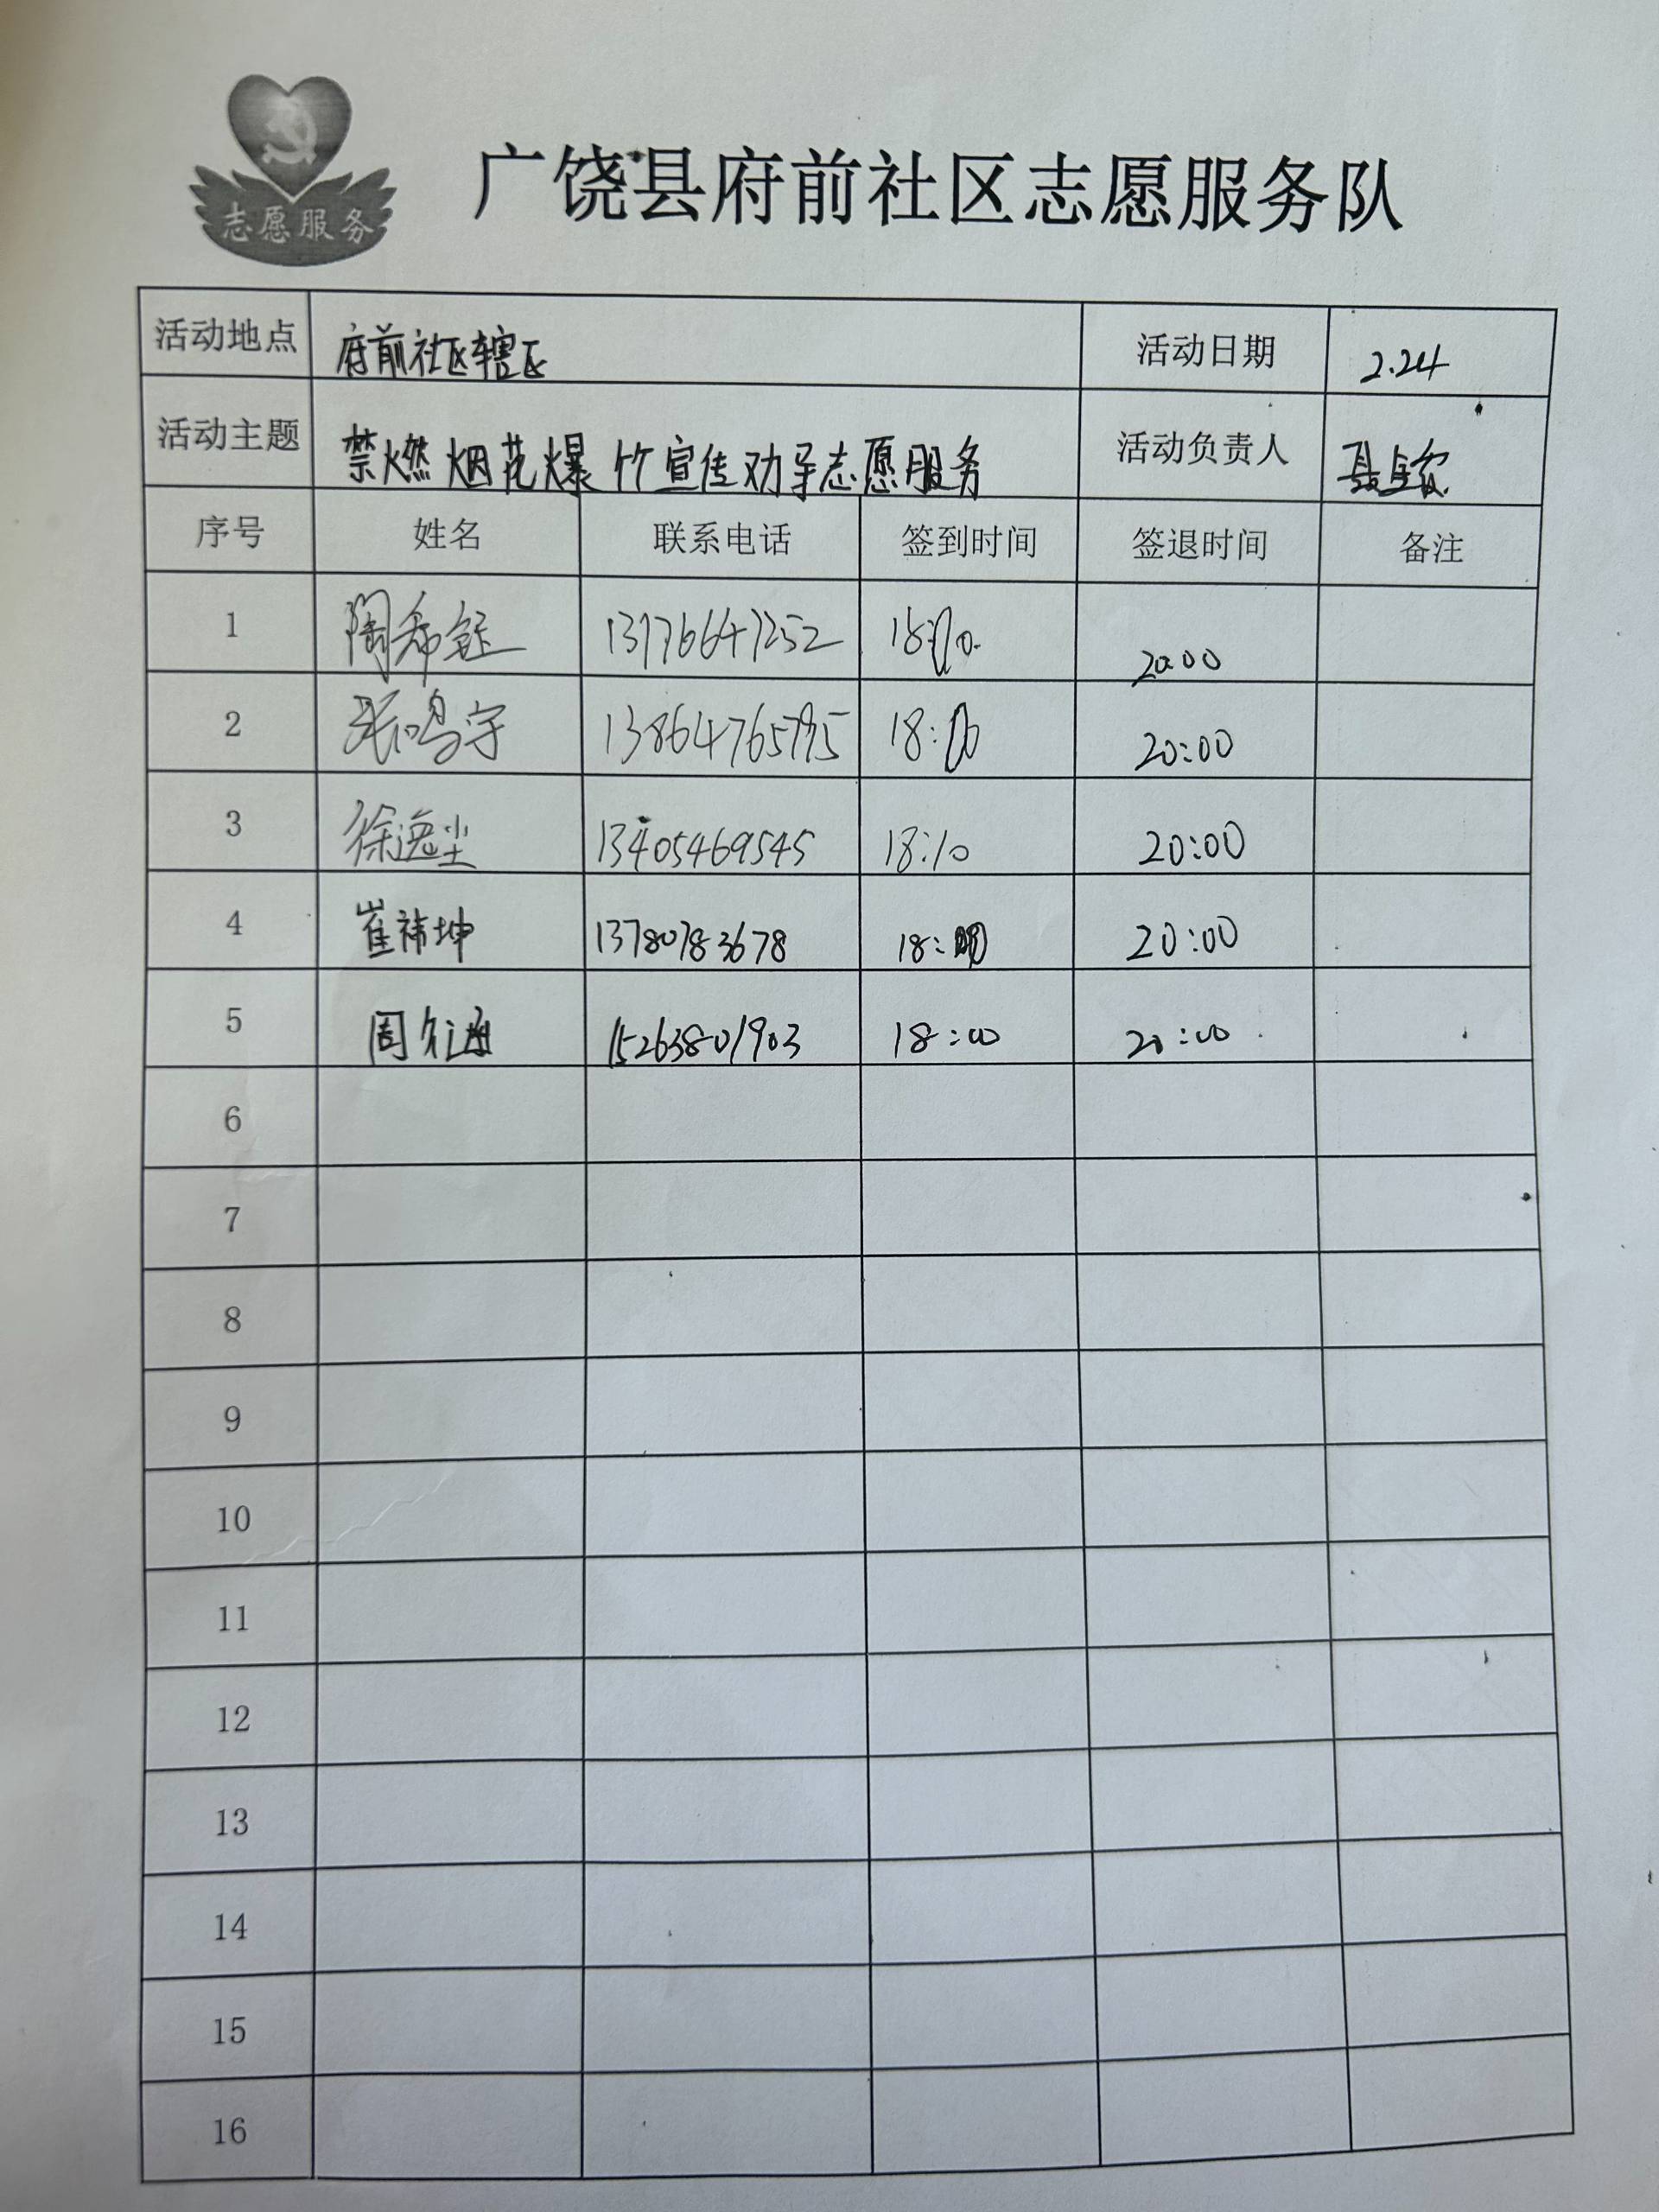 志愿服务
广饶县府前社区志愿服务队
活动地点 府前社区辖区 活动日期 2.24
活动主题 禁燃烟花爆竹宣传劝导志愿服务 活动负责人
序号 姓名 联系电话 签到时间 签退时间 备注
1 陶希钰 13176647252 18:10. 20:00
2 张鸣宇 13864765795 18:10 20:00
3 徐逸尘 13405469545 18:10 20:00
4 崔祎坤 13780783678 18: 20:00
5 周 15263801903 18:00 20:00
6
7
8
9
10
11
12
13
14
15
16